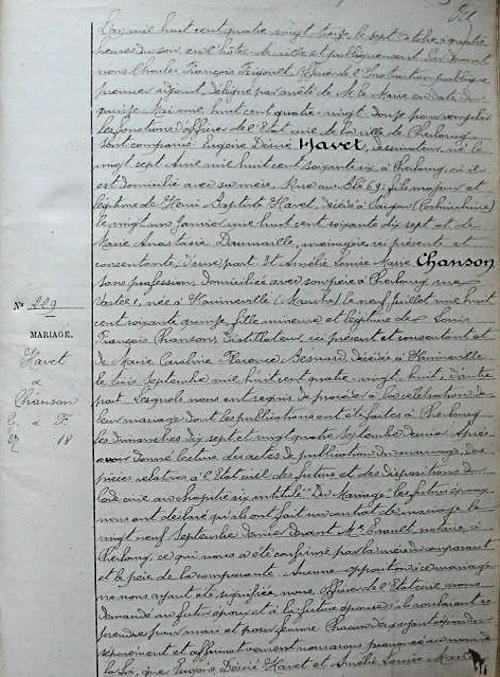 L'an mil huit cent quatre vingt treize le sept octobre à quatre
heures du soir, en l'hôtel de ville et publiquement. Par devant
nous Charles François Frigoult, Officier de l'Instruction publique,
premier adjoint, délégué par arrêté de M. le Maire en date du
quinze Mai mil huit cent quatre-vingt-douze pour remplir
les fonctions d'officier de l'Etat civil de la ville de Cherbourg
sont comparus Eugène Désiré Havet, dessinateur, né le
vingt sept mil huit cent soixante six à Cherbourg, où il
est domicilié avec sa mère, Rue au Blé 69, fils majeur et
légitime de Henri Baptiste Havet, décédé à Saïgon (Cochinchine)
le vingt un Janvier mil huit cent soixante dix sept et de
Marie Anastasie Daumaille, ménagère ici présente et
consentante, d'une part. Et Amélie Louise Marie Chanson,
sans profession, domiciliée avec son père à Cherbourg, rue
née à Hainneville (Manche), le neuf juillet mil huit
cent soixante quinze, fille mineure et légitime de Louis
François Chanson, distillateur, ici présent et consentant et
de Marie Caroline Florence Besnard, décédée à Hainneville
le trois Septembre mil huit cent quatre-vingt-huit, d'autre
part. Lesquels nous ont requis de procéder à la célébration de
leur mariage dont les publications ont été faites à Cherbourg
les dimanches dix sept et vingt quatre Septembre dernier. Après
avoir donné lecture des actes de publication du mariage, des
pièces relatives à l'Etat civil des futurs et des dispositions du
Code civil au chapitre six intitulé Du Mariage. Les futurs époux
nous ont déclaré qu'ils ont fait un contrat de mariage le
vingt neuf Septembre dernier devant Me Enault, notaire à
Cherbourg, ce qui nous a été confirmé par la mère du comparant
et le père de la comparante. Aucune opposition à ce mariage
ne nous ayant été signifiée, nous officier de l'Etat civil avons
demandé au futur époux et à la future épouse s'ils veulent se
prendre pour mari et pour femme. Chacun d'eux ayant répondu
séparément et affirmativement nous avons prononcé au nom de
la Loi, que Eugène Désiré Havet et Amélie Louise Marie
No 229
MARIAGE.
Havet
&
Chanson
G. & F.
27 18